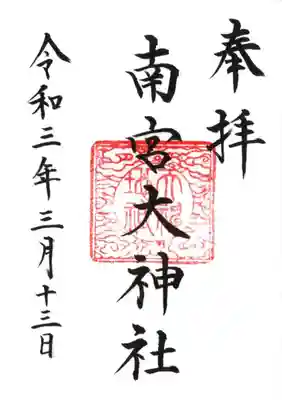 奉拝
南宮大神社
令和三年三月十三日